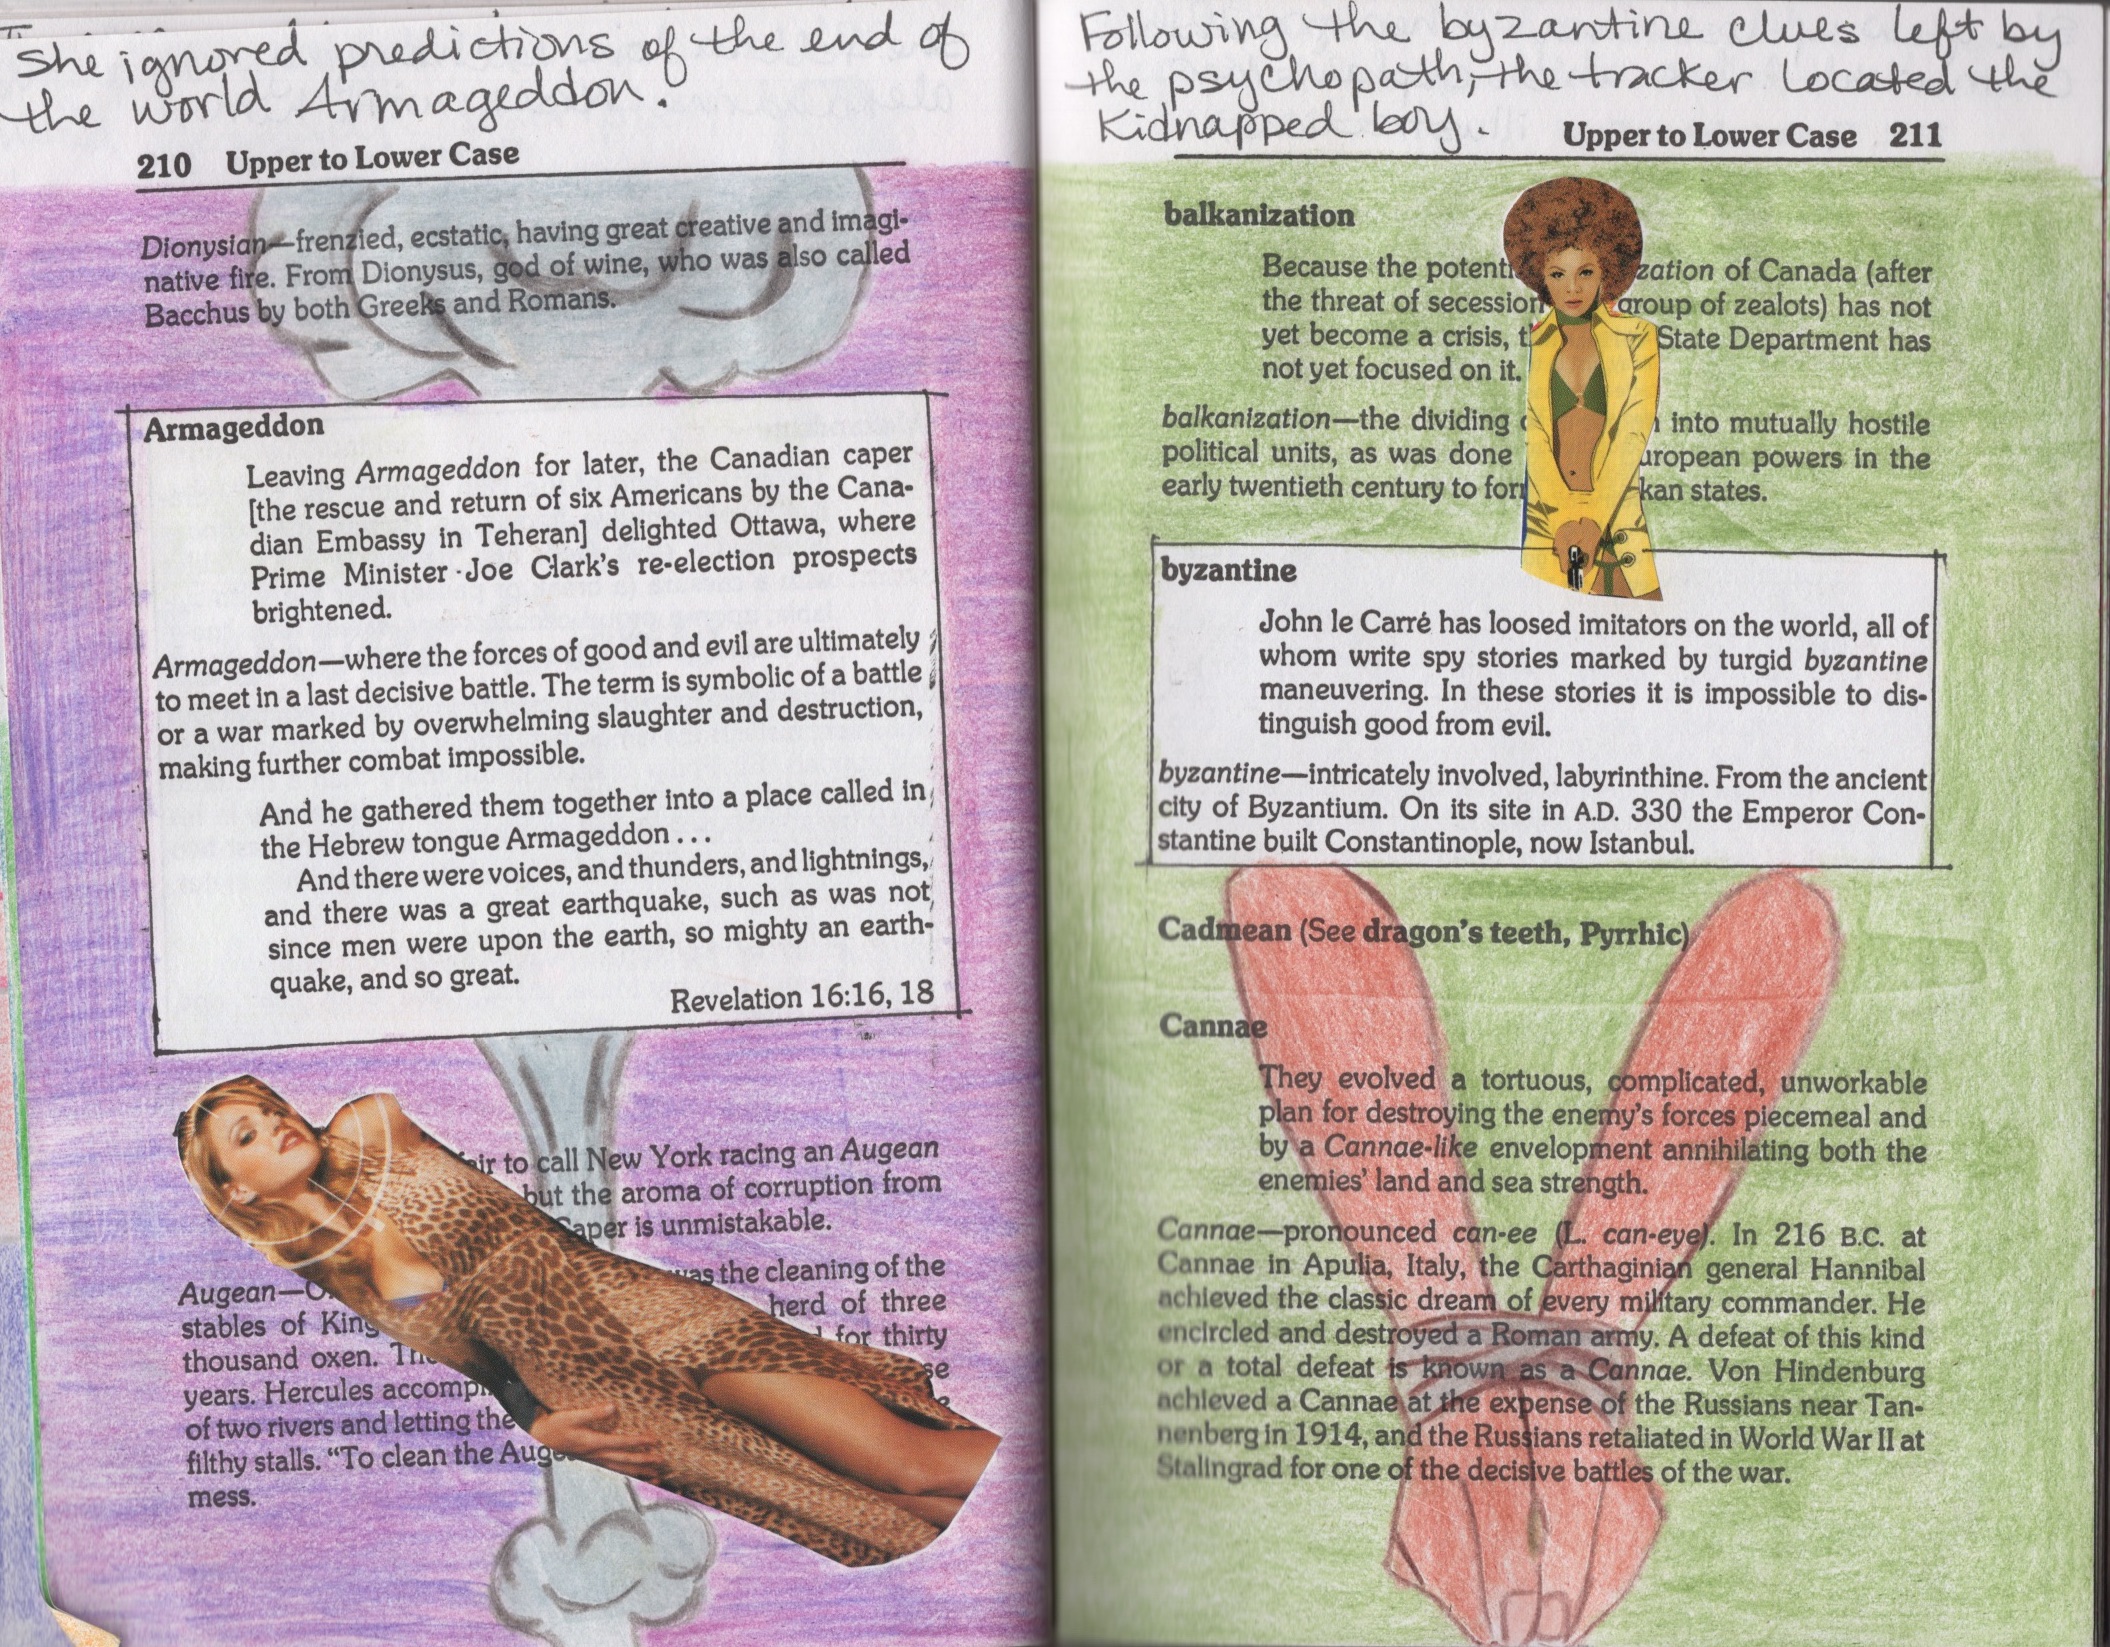 She ignored predictions of the end of
the world Armageddon.
210 Upper to Lower Case
Dionysian—frenzied, ecstatic, having great creative and imagi-
native fire. From Dionysus, god of wine, who was also called
Bacchus by both Greeks and Romans.
Armageddon
Leaving Armageddon for later, the Canadian caper
[the rescue and return of six Americans by the Cana-
dian Embassy in Teheran] delighted Ottawa, where
Prime Minister Joe Clark's re-election prospects
brightened.
Armageddon—where the forces of good and evil are ultimately
to meet in a last decisive battle. The term is symbolic of a battle
or a war marked by overwhelming slaughter and destruction,
making further combat impossible.
And he gathered them together into a place called in
the Hebrew tongue Armageddon . . .
And there were voices, and thunders, and lightnings,
and there was a great earthquake, such as was not
since men were upon the earth, so mighty an earth-
quake, and so great.
Revelation 16:16, 18
to call New York racing an Augean
but the aroma of corruption from
is unmistakable.
was the cleaning of the
Augean—
herd of three
stables of King
for thirty
thousand oxen.
years. Hercules
of two rivers and letting the
filthy stalls. "To clean the
mess.
Following the byzantine clues left by
the psychopath, the tracker located the
kidnapped boy.
Upper to Lower Case 211
balkanization
Because the of Canada (after
the threat of secession group of zealots) has not
yet become a crisis, State Department has
not yet focused on it.
balkanization—the dividing into mutually hostile
political units, as was done powers in the
early twentieth century to states.
byzantine
John le Carré has loosed imitators on the world, all of
whom write spy stories marked by turgid byzantine
maneuvering. In these stories it is impossible to dis-
tinguish good from evil.
byzantine—intricately involved, labyrinthine. From the ancient
city of Byzantium. On its site in A.D. 330 the Emperor Con-
stantine built Constantinople, now Istanbul.
Cadmean (See dragon's teeth, Pyrrhic)
Cannae
They evolved a tortuous, complicated, unworkable
plan for destroying the enemy's forces piecemeal and
by a Cannae-like envelopment annihilating both the
enemies' land and sea strength.
Cannae—pronounced can-ee (L. can-eye). In 216 B.C. at
Cannae in Apulia, Italy, the Carthaginian general Hannibal
achieved the classic dream of every military commander. He
encircled and destroyed a Roman army. A defeat of this kind
or a total defeat is known as a Cannae. Von Hindenburg
achieved a Cannae at the expense of the Russians near Tan-
nenberg in 1914, and the Russians retaliated in World War II at
Stalingrad for one of the decisive battles of the war.